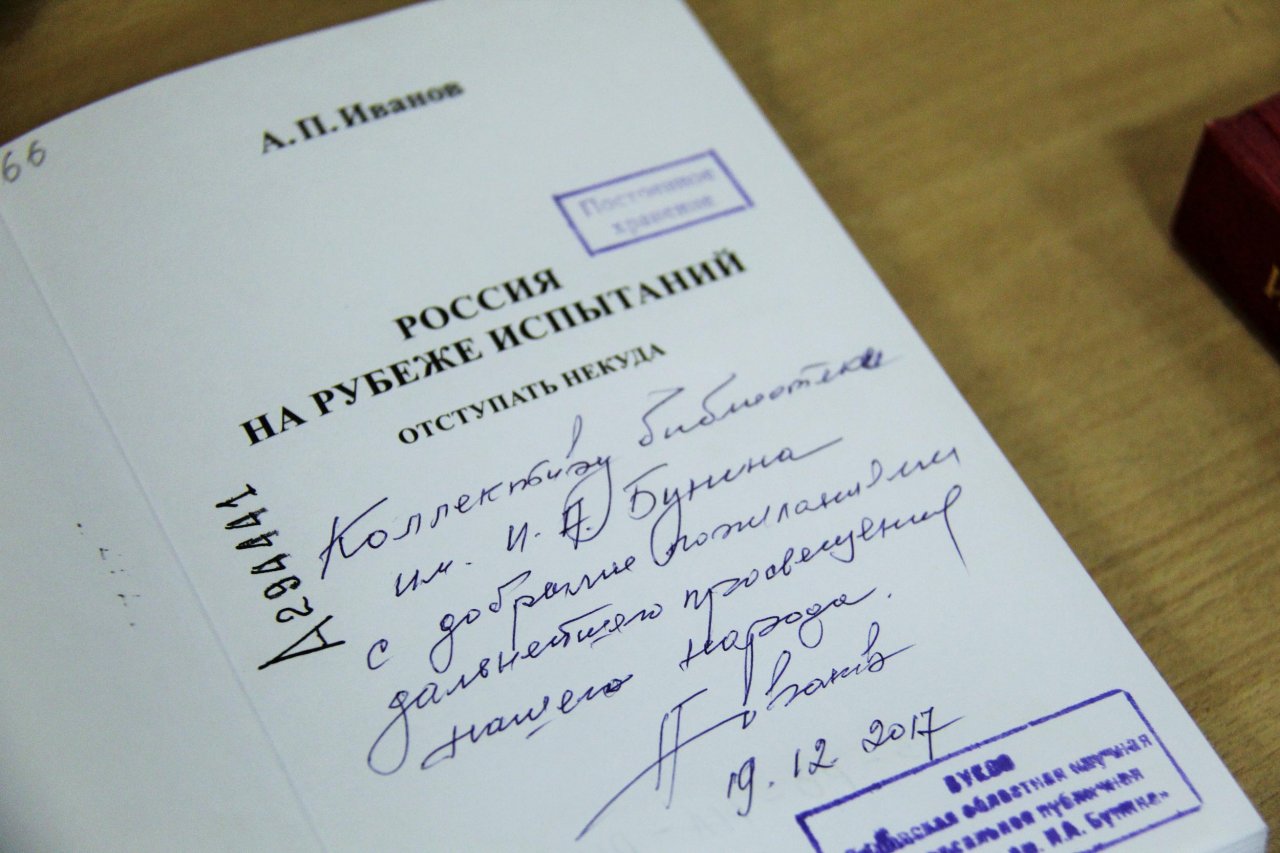 66
А. П. Иванов
Постоянное
хранение
РОССИЯ
НА РУБЕЖЕ ИСПЫТАНИЙ
ОТСТУПАТЬ НЕКУДА
Д 294441
Коллективу библиотеки
им. И. А. Бунина
с добрыми пожеланиями
дальнейшего просвещения
нашего народа.
Иванов
19.12.2017
БУКОО
областная научная
публичная
им. И.А. Бунина»